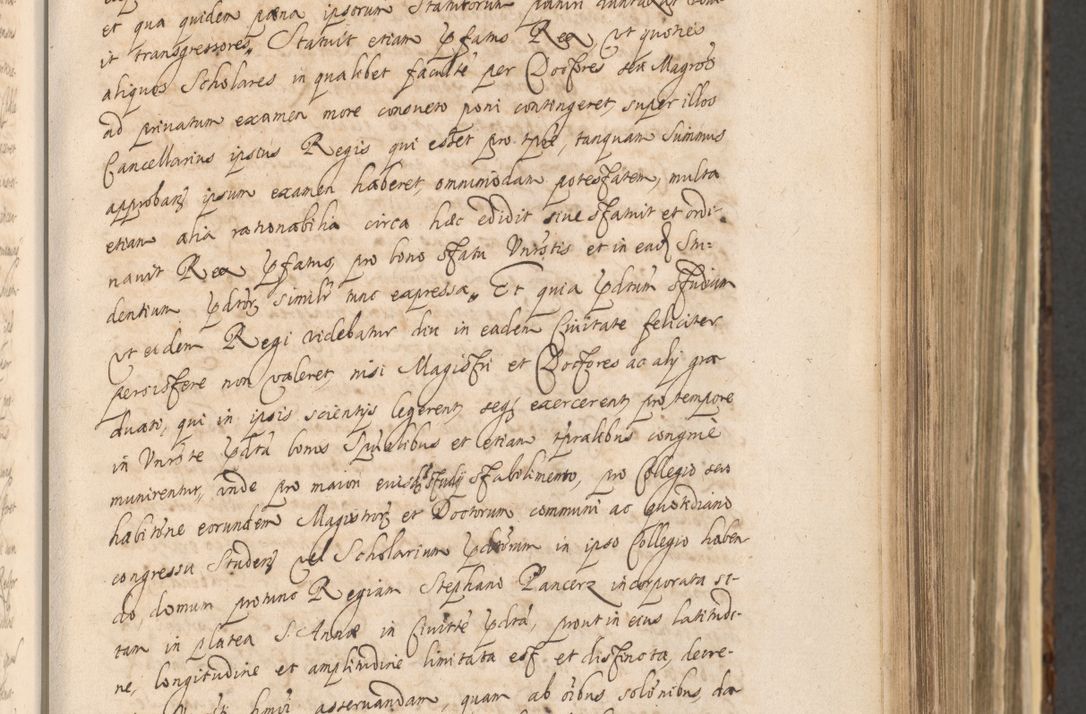 et qua quidem pæna ipsorum Statutorum puniri
it transgressores„ Statuit etiam p̱fatus Rex, Vt quoties
aliquos Scholares in qualibet facultē per Doctores seu Magrōs
ad priuatum examen more consueto poni contingeret, super illos
Cancellarius ipsius Regis qui esset pro tpōe, tanquam summus
approbans ipsum examen haberet omnimodam potestatem, multa
etiam alia rationabilia circa hæc edidit siue statuit et ordi-
nauit Rex p̱fatus, pro bono statu Vnirstis et in eadẽ Stu-
dentium p̱dtor̃, similr̃ tunc expressa„ Et quia p̱dtum studium
Vt eidem Regi videbatur diu in eadem Ciuitate feliciter
persistere non Valeret, nisi Magistri et Doctores ac alij gra
duati, qui in ipsis scientijs legerent, seqʒ exercerent, pro tempore
in Vnirste p̱dta bonis Spūalibus et etiam tp̃ralibus congrue
munirentur, inde pro maiori eiusdẽ studij stabilimento, pro Collegio seu
habitōne eorundem Magistror̃ et Doctorum communi ac quotidiano
congressu Studeñ Vel Scholarium p̱dtorum in ipso Collegio haben
do, domum protunc Regiam Stephano Pancerz incorporata si-
tam in platea S. Annæ in Ciuittē p̱dta, prout in eius Latitudi-
ne, longitudine et amplitudine limitata est et distincta, decre-
asseruandam, quam ab oibus solōnibus, da